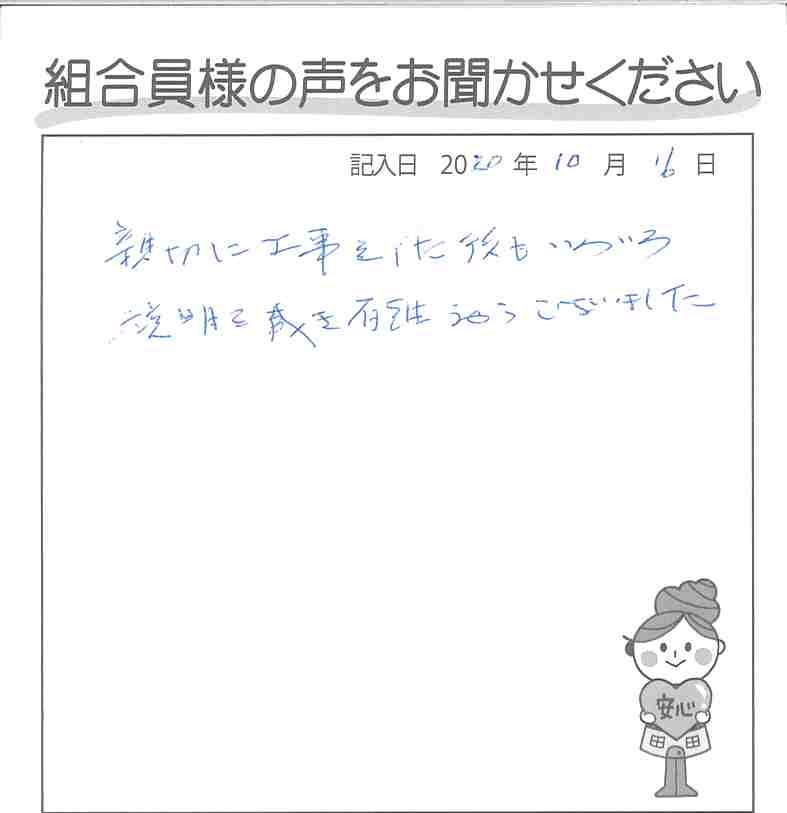 組合員様の声をお聞かせください
記入日 2020年10月16日
親切に工事をした後もいろいろ
説明を載き有難うございました
安心